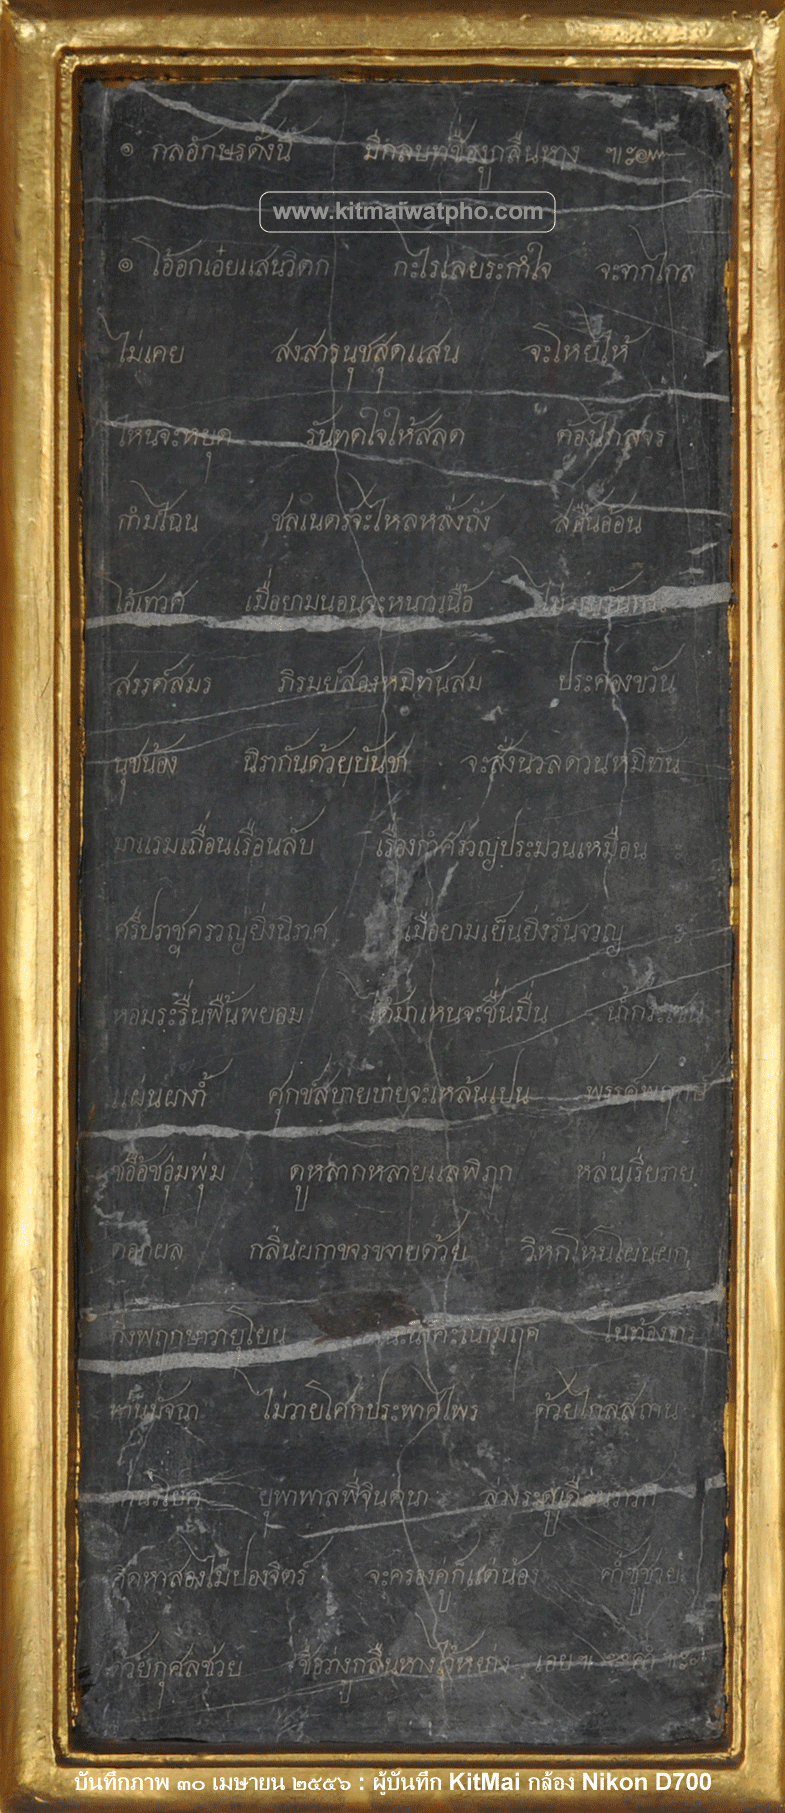 ๏ กลอักษรดั่งนี้ มีกลบทชื่องูกลืนหาง ฯะ๛
www.kitmaiwatpho.com
๏ โอ้อกเอ๋ยแสนวิตก กะไรเลยระกำใจ จะจากไกล
ไม่เคย สงสารนุชสุดแสน จะโหยไห้
ไหนจะหยุด รันทดใจให้สลด ต้องไกลจร
กำมไฉน ชลเนตร์จะไหลหลั่งถั่ง สอื้นอ้อน
โอ้เทวศ เมื่อยามนอนจะหนาวเนื้อ
สรรค์สมร ภิรมย์สองหมิทันสม ประคองขวัน
นุชน้อง นิรากันด้วยบันชา จะสั่งนวลควนหมิทัน
มาแรมเถื่อนเรือนลับ เรื่องกำศรวญประมวนเหมือน
ศรีปราชคราญยิ่งนิราศ เมื่อยามเย็นยิ่งรันจวญ
หอมระรื่นพื้นพยอม ได้มาเหนจะชื่นมื่น
แผ่นผงำ้ ศุกขสบายบ่ายจะเหล้นเปน
ชอื้อชอุ่มพุ่ม ดูหลากหลายแลพิฦก หล่นเรี่ยราย
ดอกผล กลิ่นผกาขจรขจายด้วย วิหกโหนโผนผก
กิ่งพฤกษาวายุโยย ในท้องธาร
ไม่วายโศกประพาศไพร ด้วยไกลสถาน
ยุพาพาลพี่จินตนา
คิดหาสองไม่ปองจิตร์ จะครองคู่ก็แต่น้อง ค้ำชูช่วย
ด้วยกุศลช่วย ชื่อว่างูกลืนหางไว้หย่าง เอย
บันทึกภาพ ๓๐ เมษายน ๒๕๕๖ : ผู้บันทึก KitMai กล้อง Nikon D700